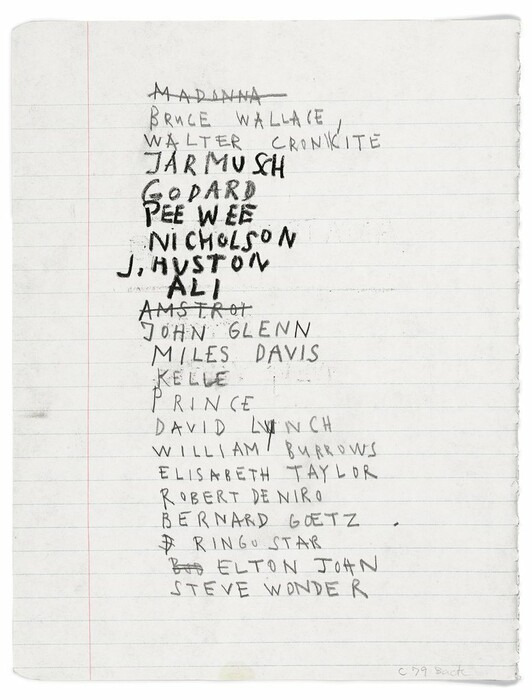 MADONNA
BRUCE WALLACE,
WALTER CRONKITE
JARMUSCH
GODARD
PEE WEE
NICHOLSON
J. HUSTON
ALI
AMSTROT
JOHN GLENN
MILES DAVIS
KELLE
PRINCE
DAVID LYNCH
WILLIAM BURROWS
ELISABETH TAYLOR
ROBERT DE NIRO
BERNARD GOETZ .
RINGO STAR
ELTON JOHN
STEVE WONDER
C 79 Back